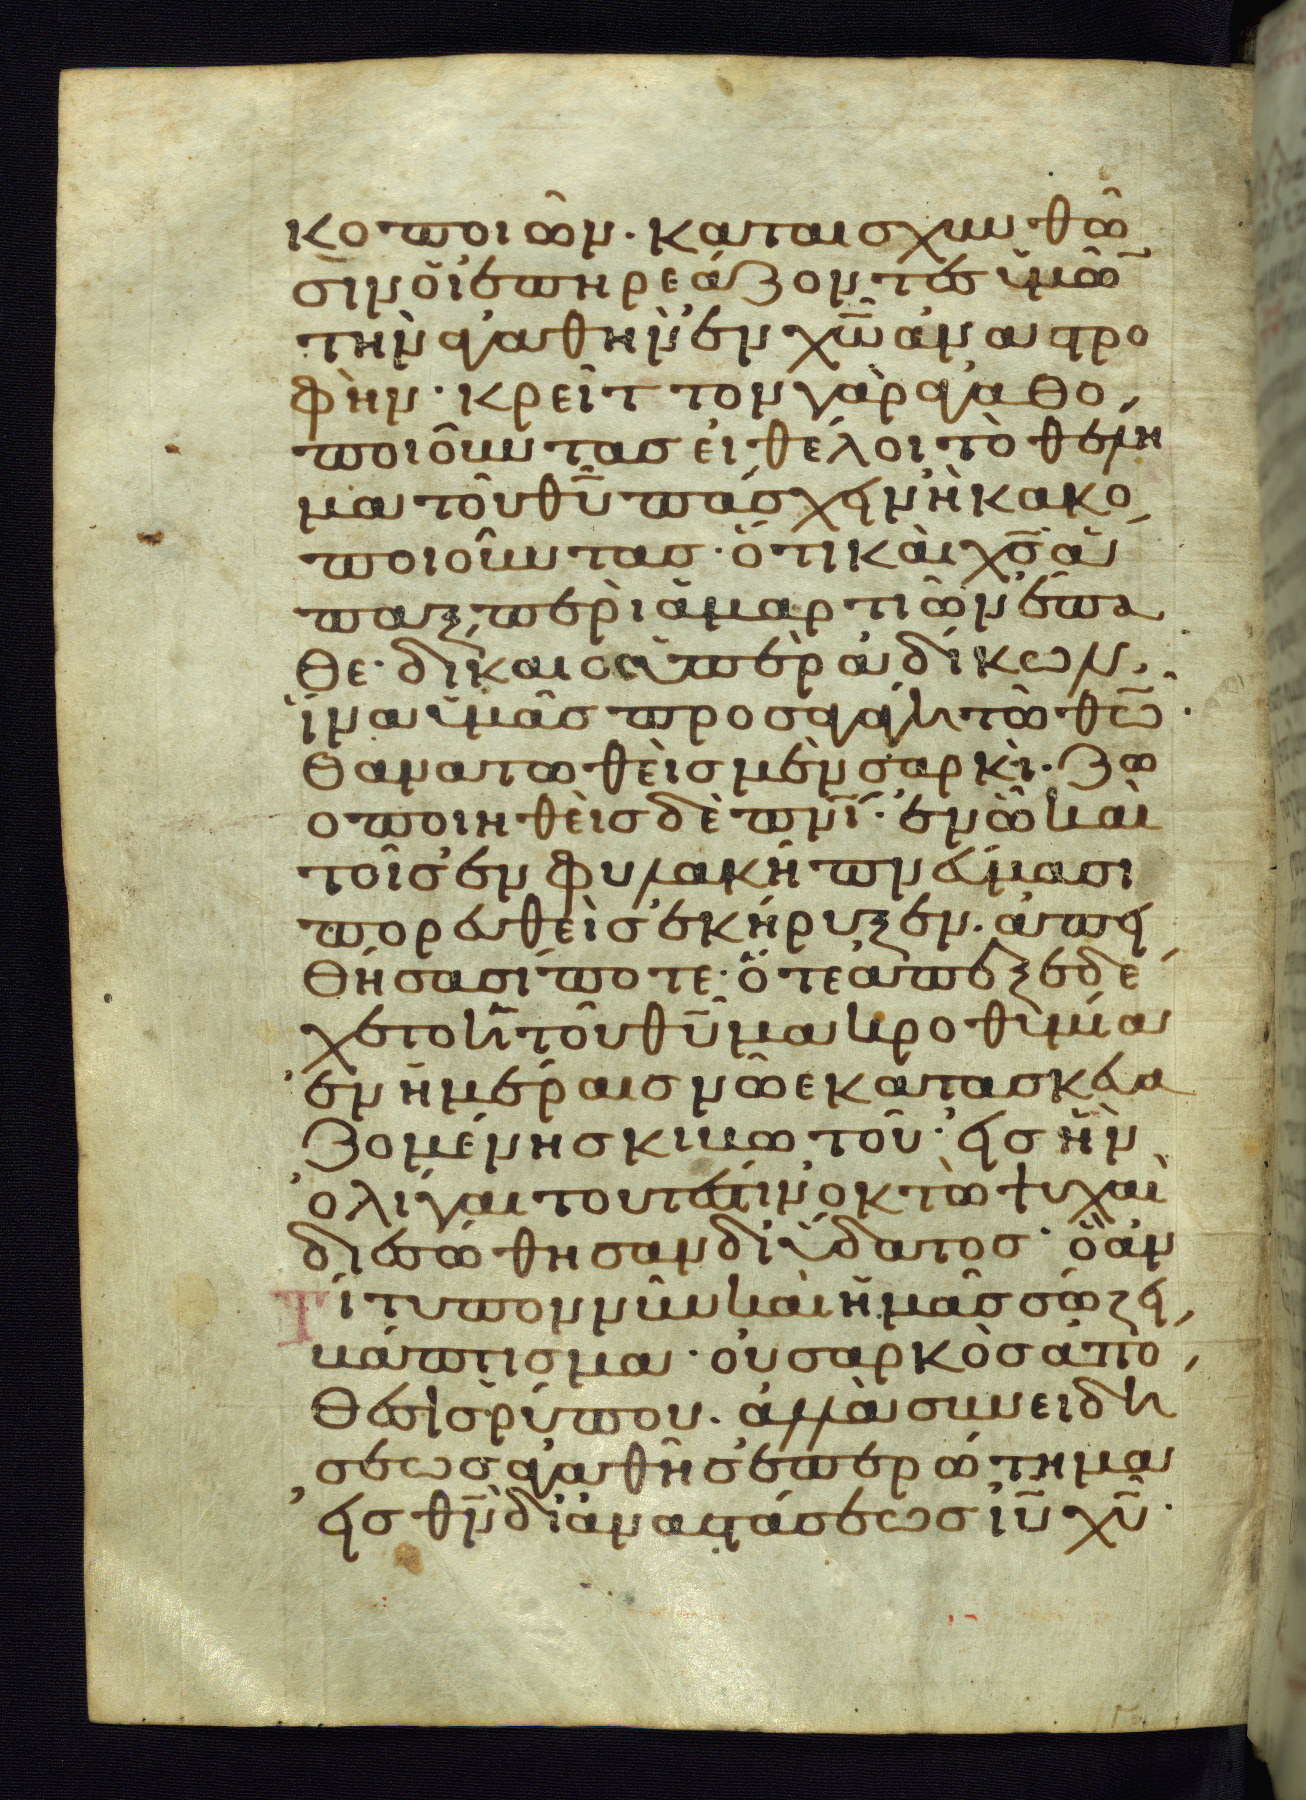 κοποιῶν· καταισχυνθῶ
σιν οἱ ἐπηρεάζοντες ὑμῶν
τὴν ἀγαθὴν ἐν χω̅ ἀναστρο
φὴν· κρεῖττον γὰρ ἀγαθο
ποιοῦντας εἰ θέλοι τὸ θέλη
μα τοῦ θυ̅ πάσχειν ἢ κακο
ποιοῦντας· ὅτι καὶ χσ̅ ἅ
παξ περὶ ἁμαρτιῶν ἔπα
θε· δίκαιος ὑπὲρ ἀδίκων,
ἵνα ὑμᾶς προσαγάγη τῶ θω̅·
θανατωθεὶς μὲν σαρκὶ· ζω
οποιηθεὶς δὲ πνι̅· ἐν ὧ καὶ
τοῖς ἐν φυλακῆ πνεύμασι
πορευθεὶς ἐκήρυξεν· ἀπει
θήσασί ποτε· ὅτε ἀπεξεδέ
χετο ἡ τοῦ θυ̅ μακροθυμία
ἐν ἡμέραις νῶε κατασκευα
ζομένης κιβωτοῦ· εἰς ἣν
ὀλίγαι τουτέστιν ὀκτὼ ψυχαὶ
διεσώθησαν δι' ὕδατος· ὃ ἀν
τίτυπον νῦν καὶ ἡμᾶς σώζει
βάπτισμα· οὐ σαρκὸς ἀπό
θεσις ῥύπου· ἀλλὰ συνειδή
σεως ἀγαθῆς ἐπερώτημα
εἰς θν̅ δι' ἀναστάσεως ιυ̅ χυ̅·